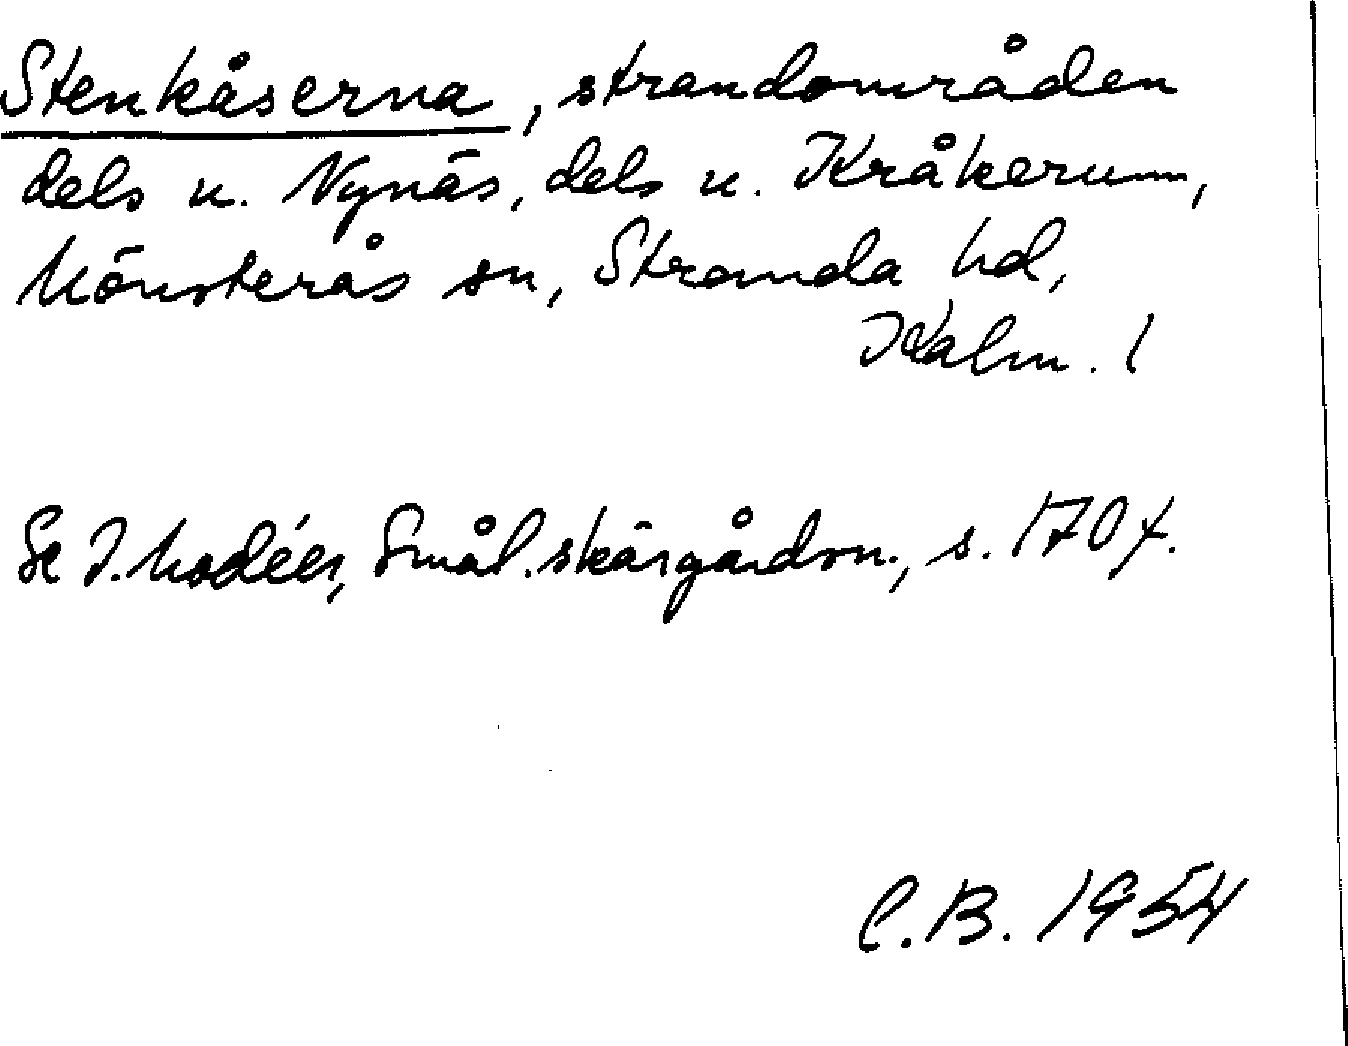 Stenkåserna, strandområden
dels u. Nynäs, dels u. Kråkerum,
Mönsterås sn, Stranda hd,
Kalm. l
Se I. Modéer, Smål. skärgårdsn., s. 170 f.
C.B. 1954